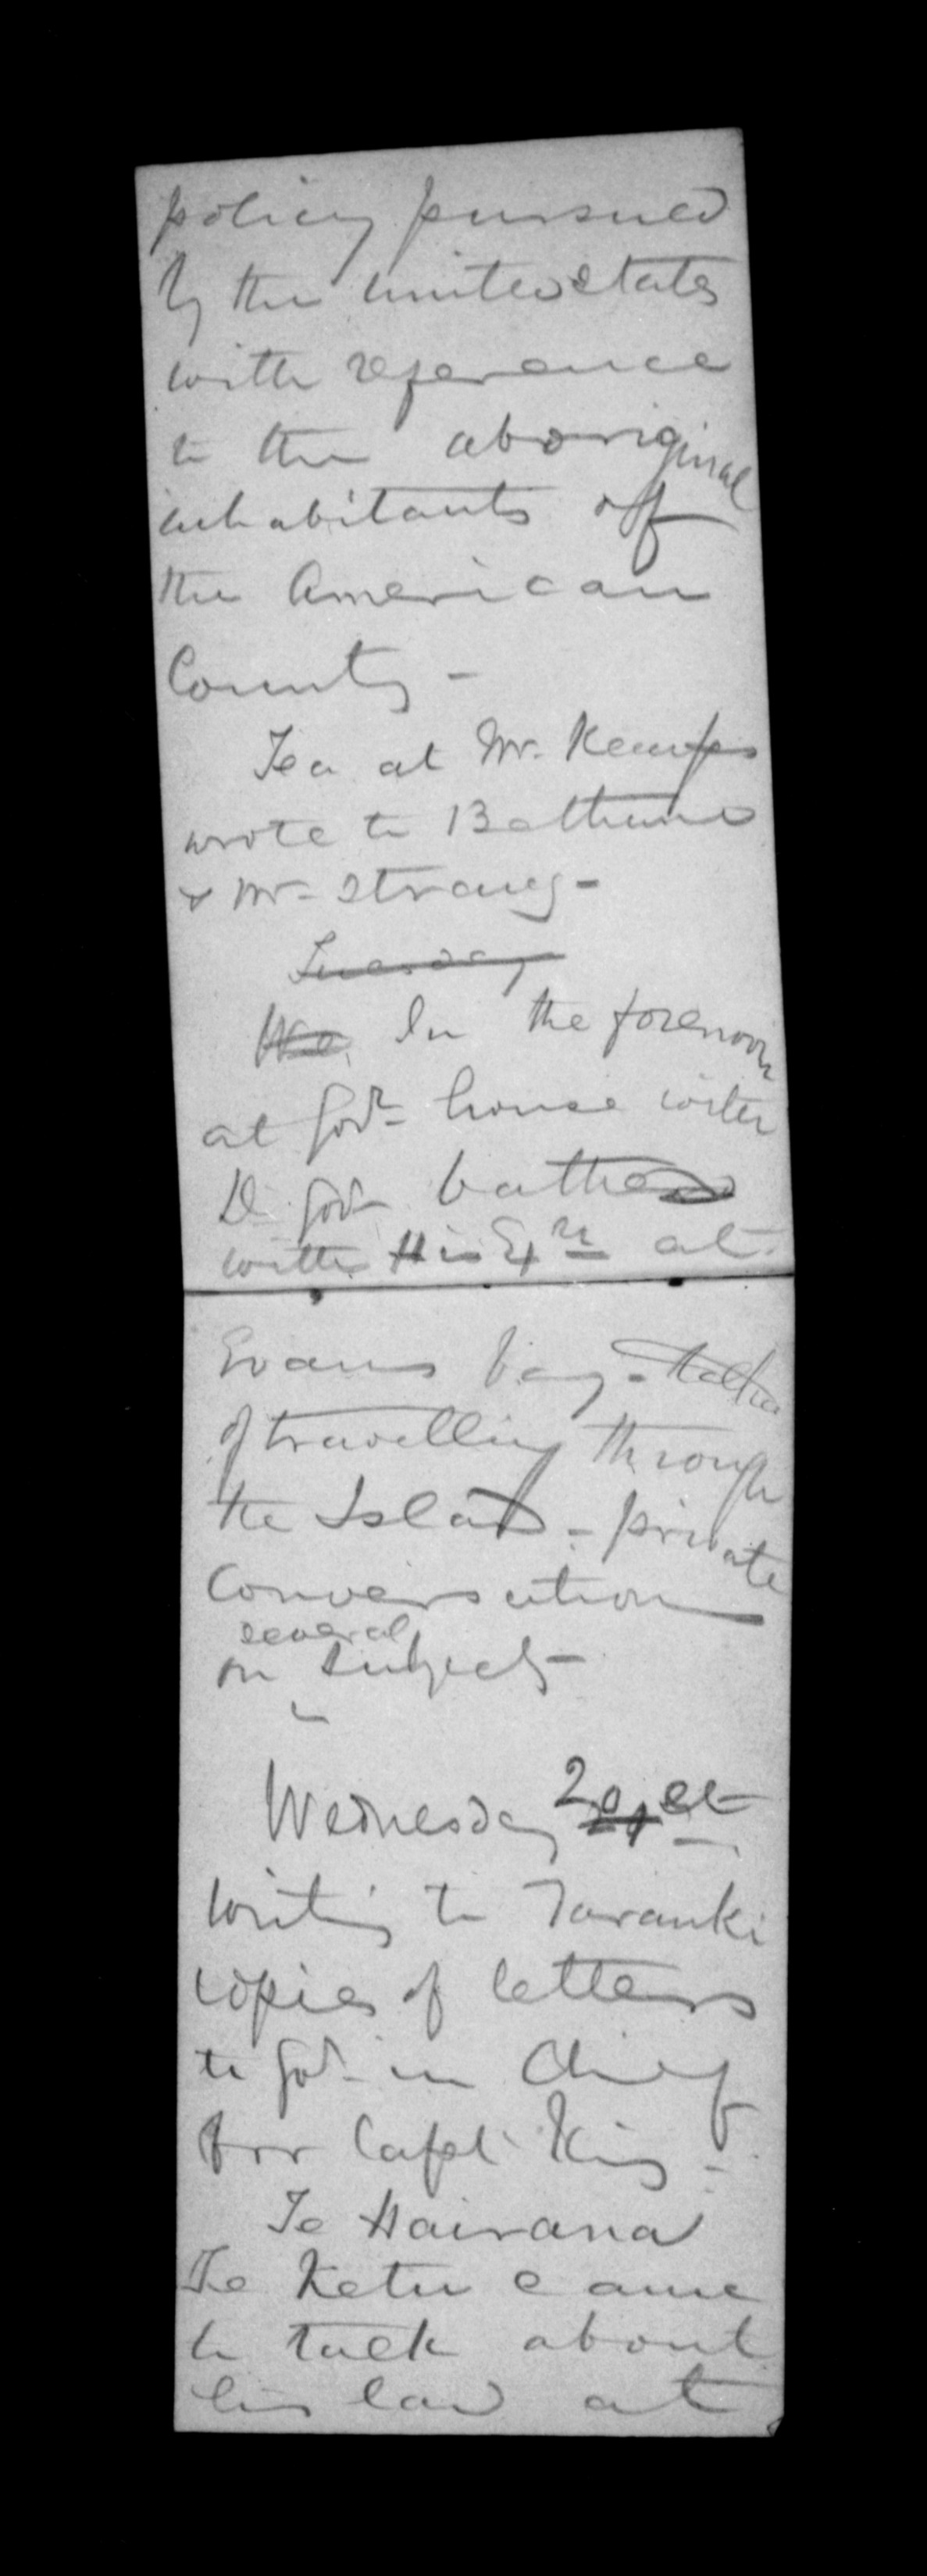 policy pursued
by the united states
with reference
to the aboriginal
inhabitants off
the American
County -
Tea at Mr. Kemps
wrote to Bethune
& Mr - Strang -
Tuesday
We. In the forenoon
at Govr. house with
Lt. Govr bathed
with His Ex at
Evans bay - talked
of travelling through
the Island - private
Conversation
several
on subjects -
Wednesday 20
writing to Taranki
copies of letters
to Govr in Chief
for Capt King -
Te Hairana
Te Ketu came
to talk about
his land at